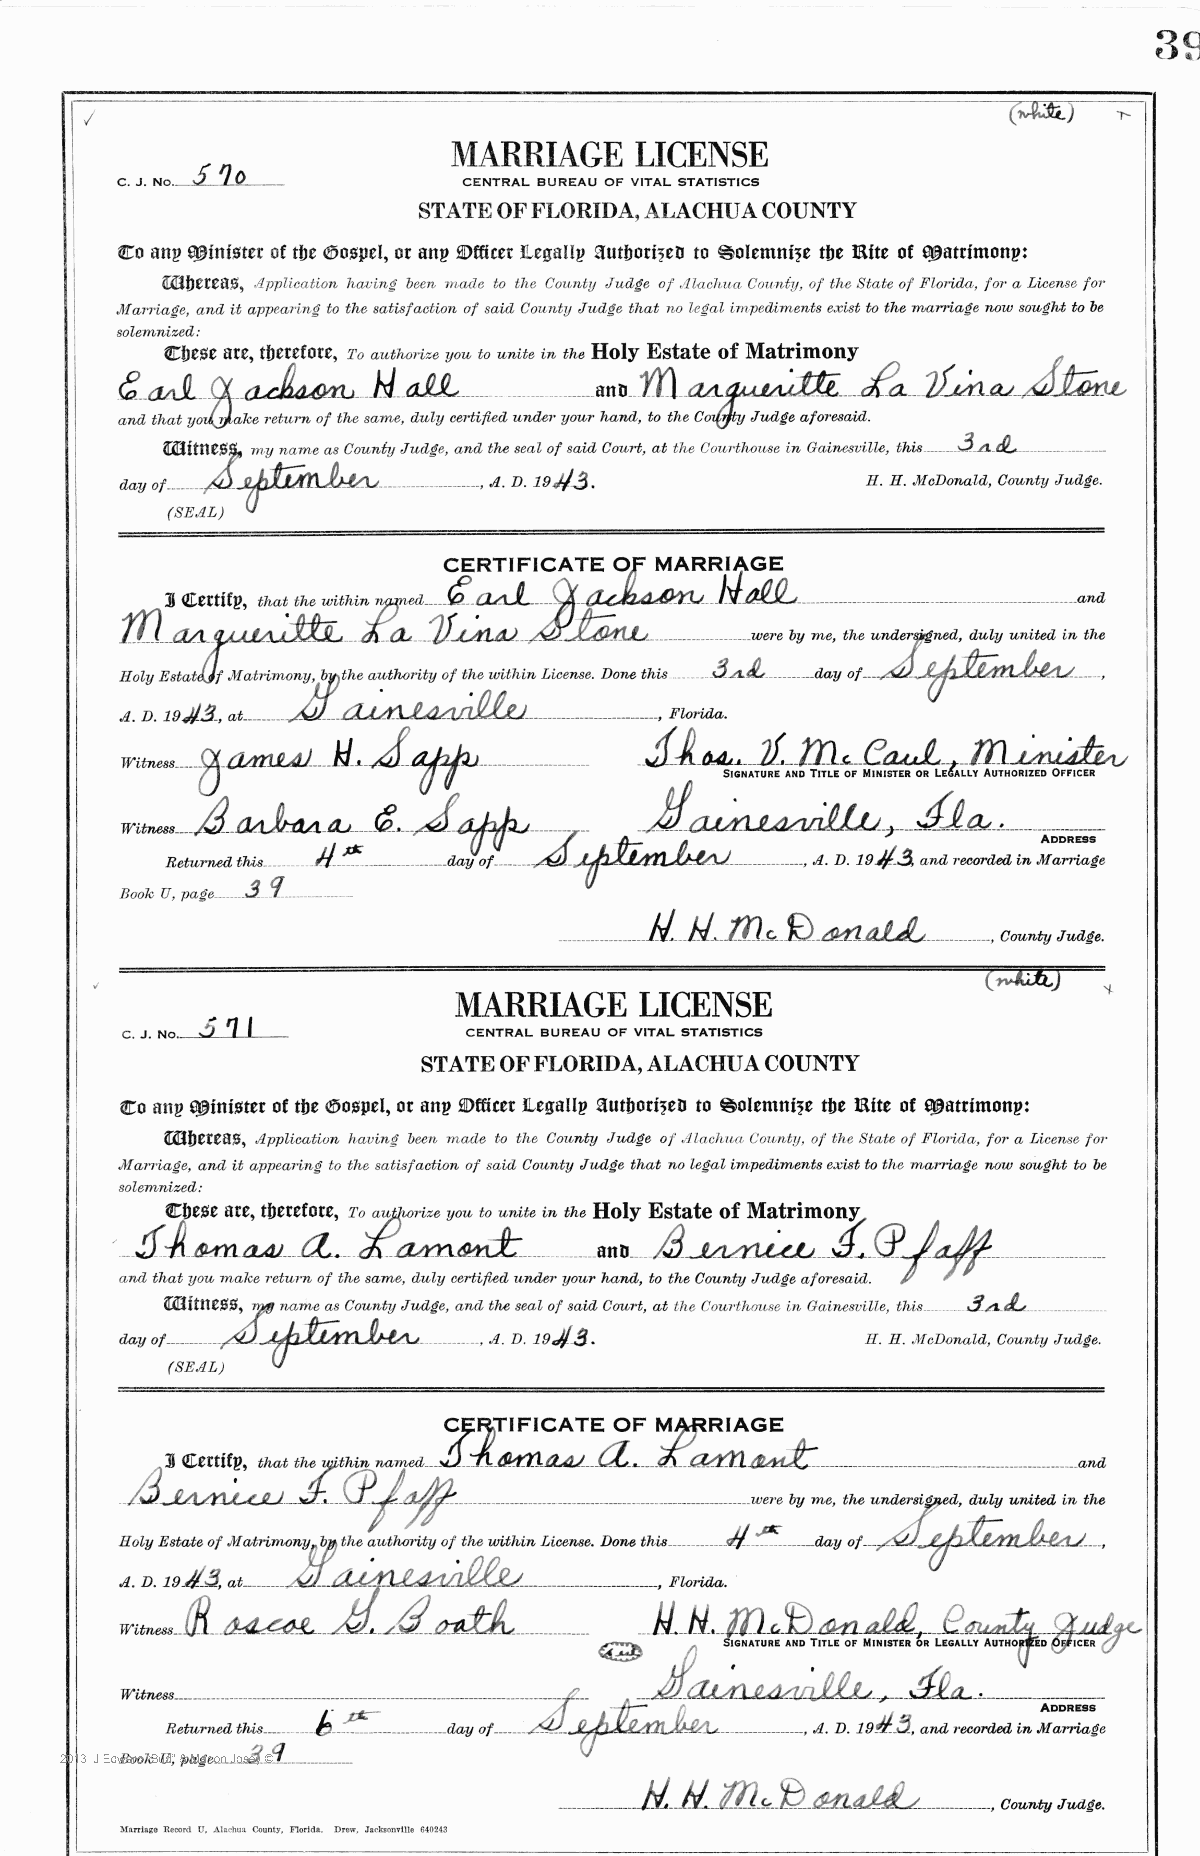 39
(white)
MARRIAGE LICENSE
C. J. No. 570
CENTRAL BUREAU OF VITAL STATISTICS
STATE OF FLORIDA, ALACHUA COUNTY
To any Minister of the Gospel, or any Officer Legally Authorized to Solemnize the Rite of Matrimony:
Whereas, Application having been made to the County Judge of Alachua County, of the State of Florida, for a License for
Marriage, and it appearing to the satisfaction of said County Judge that no legal impediments exist to the marriage now sought to be
solemnized:
These are, therefore, To authorize you to unite in the Holy Estate of Matrimony
Earl Jackson Hall and Margueritte La Vina Stone
and that you make return of the same, duly certified under your hand, to the County Judge aforesaid.
Witness, my name as County Judge, and the seal of said Court, at the Courthouse in Gainesville, this 3rd
day of September, A. D. 1943. H. H. McDonald, County Judge.
(SEAL)
CERTIFICATE OF MARRIAGE
I Certify, that the within named Earl Jackson Hall and
Margueritte La Vina Stone were by me, the undersigned, duly united in the
Holy Estate of Matrimony, by the authority of the within License. Done this 3rd day of September,
A. D. 1943, at Gainesville, Florida.
Witness James H. Sapp Thos. V. McCaul, Minister
SIGNATURE AND TITLE OF MINISTER OR LEGALLY AUTHORIZED OFFICER
Witness Barbara E. Sapp Gainesville, Fla.
ADDRESS
Returned this 4th day of September, A. D. 1943, and recorded in Marriage
Book U, page 39
H. H. McDonald, County Judge.
(white)
MARRIAGE LICENSE
C. J. No. 571
CENTRAL BUREAU OF VITAL STATISTICS
STATE OF FLORIDA, ALACHUA COUNTY
To any Minister of the Gospel, or any Officer Legally Authorized to Solemnize the Rite of Matrimony:
Whereas, Application having been made to the County Judge of Alachua County, of the State of Florida, for a License for
Marriage, and it appearing to the satisfaction of said County Judge that no legal impediments exist to the marriage now sought to be
solemnized:
These are, therefore, To authorize you to unite in the Holy Estate of Matrimony
Thomas A. Lamont and Bernice F. Pfaff
and that you make return of the same, duly certified under your hand, to the County Judge aforesaid.
Witness, my name as County Judge, and the seal of said Court, at the Courthouse in Gainesville, this 3rd
day of September, A. D. 1943. H. H. McDonald, County Judge.
(SEAL)
CERTIFICATE OF MARRIAGE
I Certify, that the within named Thomas A. Lamont and
Bernice F. Pfaff were by me, the undersigned, duly united in the
Holy Estate of Matrimony, by the authority of the within License. Done this 4th day of September,
A. D. 1943, at Gainesville, Florida.
Witness Roscoe G. Booth H. H. McDonald, County Judge
SIGNATURE AND TITLE OF MINISTER OR LEGALLY AUTHORIZED OFFICER
Witness Gainesville, Fla.
ADDRESS
Returned this 6th day of September, A. D. 1943, and recorded in Marriage
Book U, page 39
H. H. McDonald, County Judge.
Marriage Record U, Alachua County, Florida. Drew, Jacksonville 640243